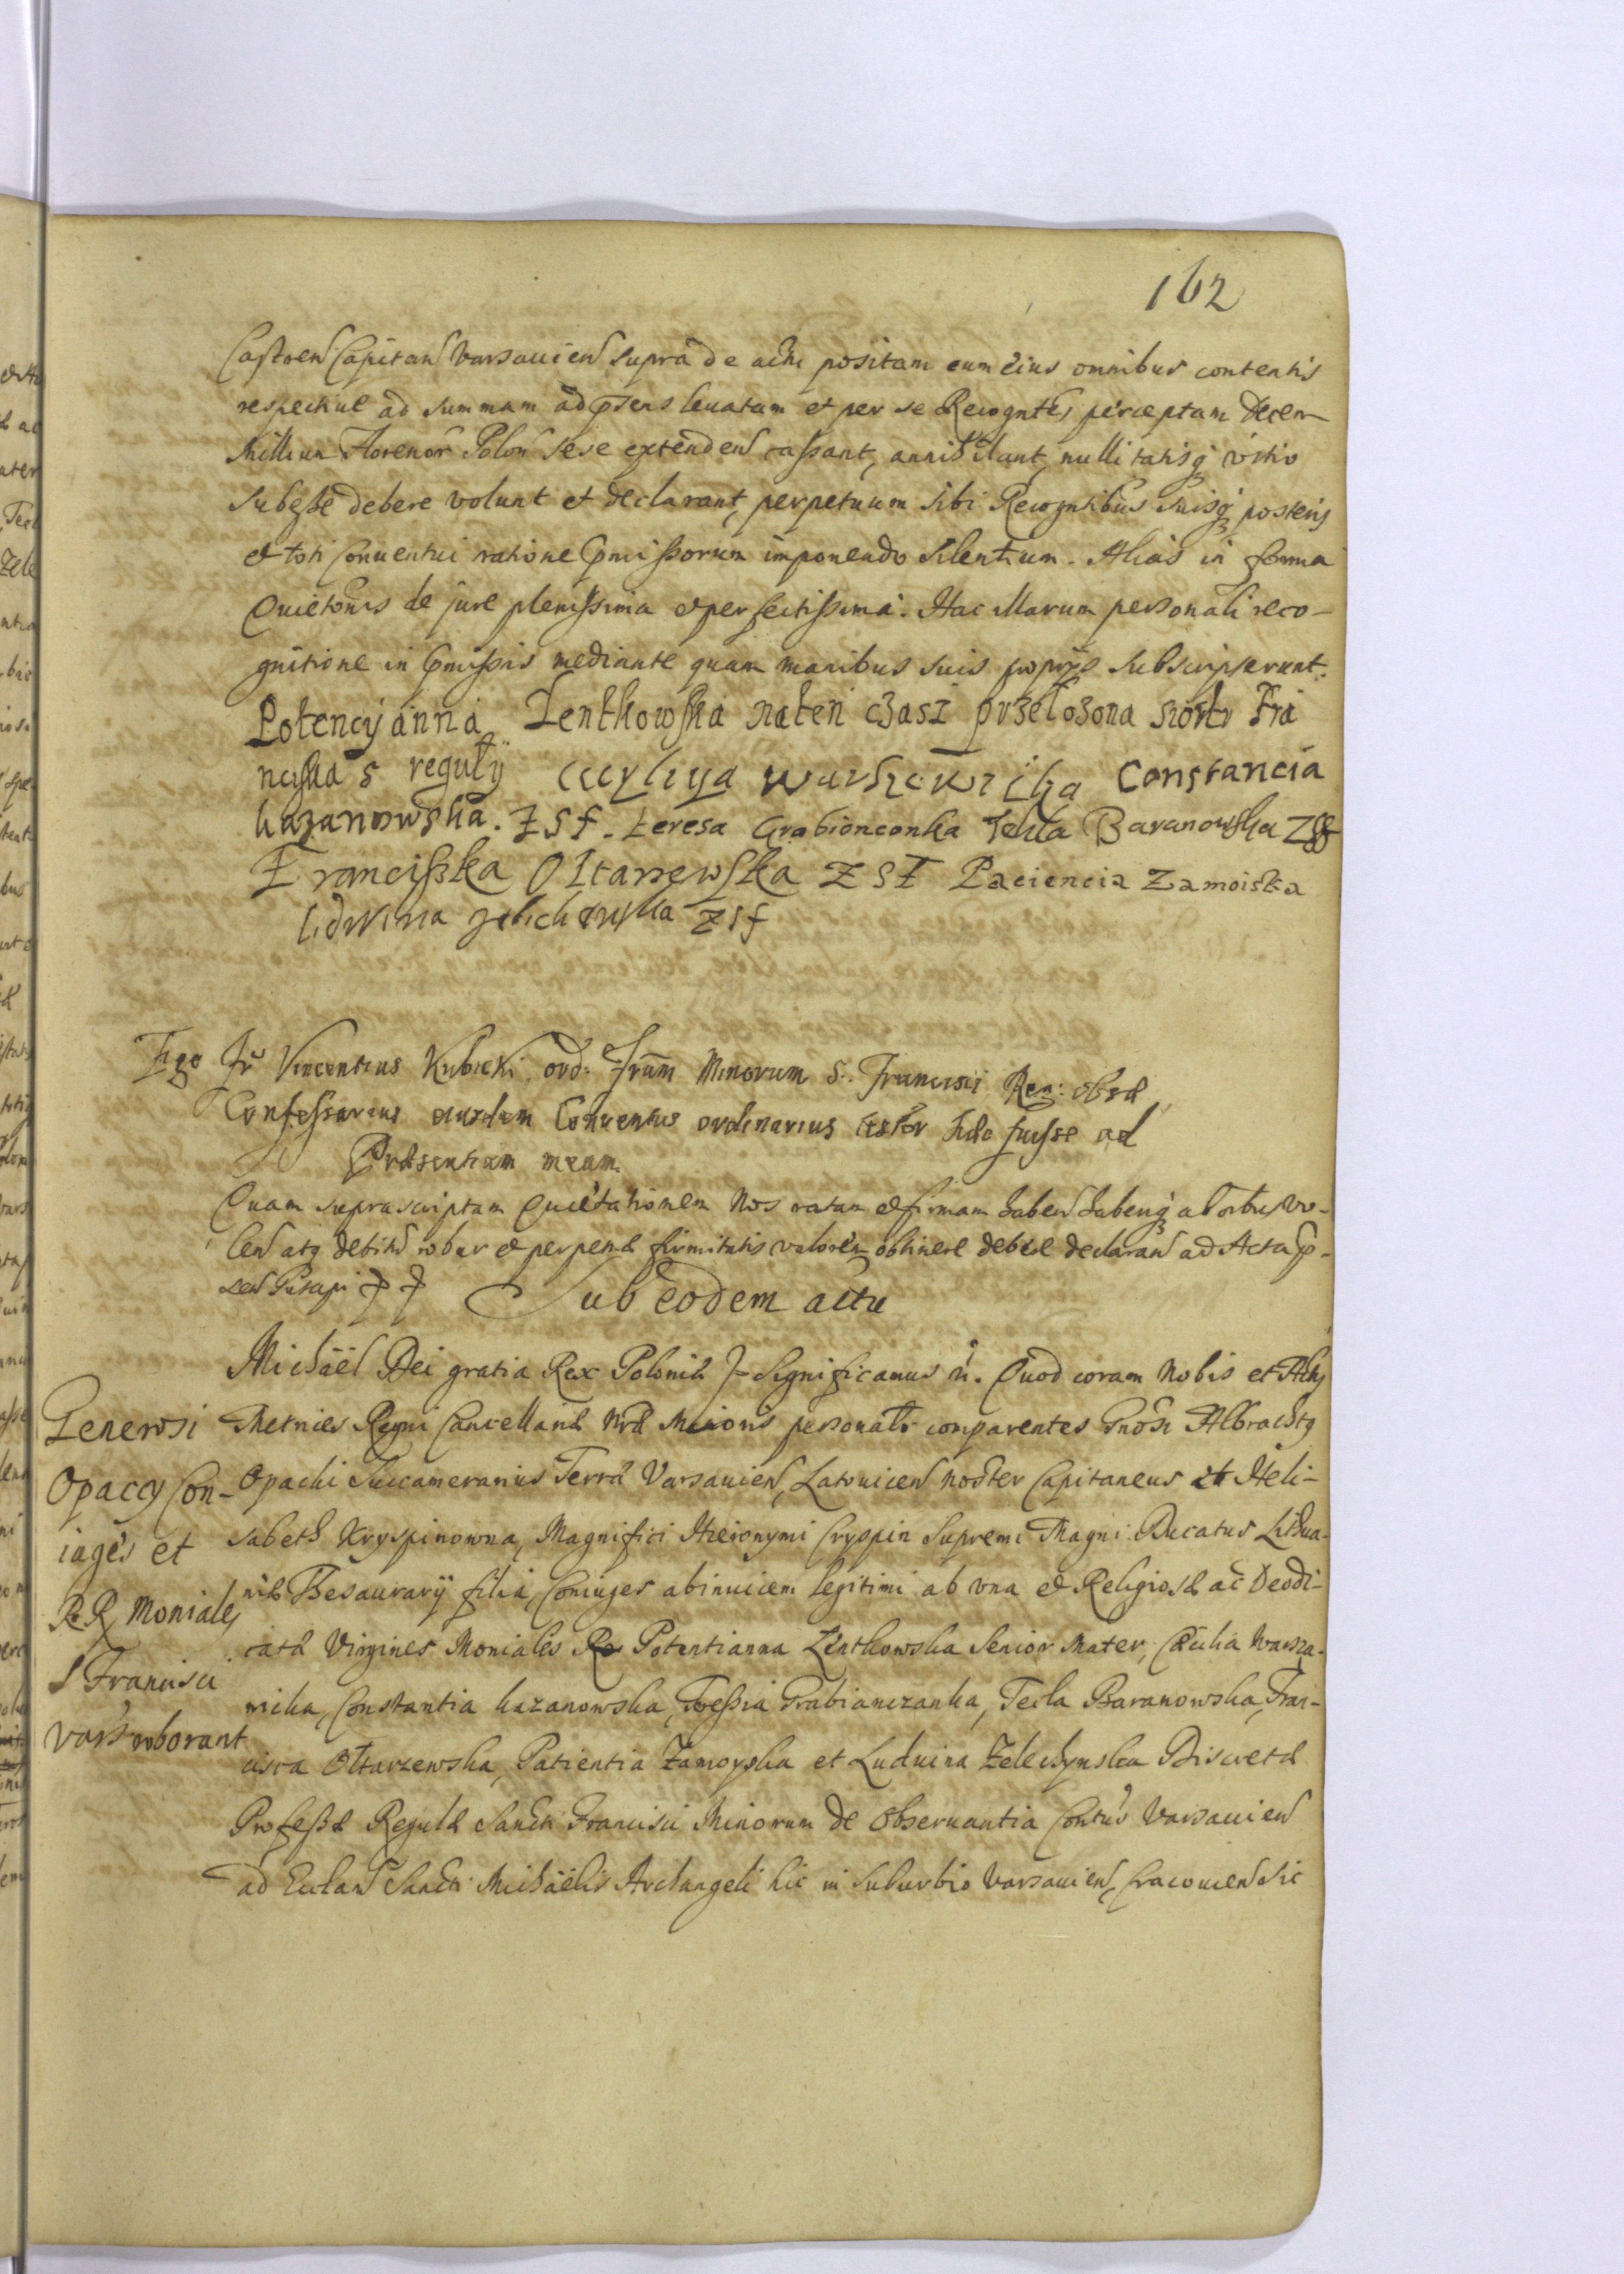 162
Castren Capitan Varsauien supra de actu positam cum eius omnibus contentis
respectiue ad summam ad pñsens leuatam et per se Recogntes perceptam Decem
Millium Florenor Polon sese extenden cassant, annihilant, nullitatisq vitio
subesse debere volunt et declarant, perpetuum sibi Recogntibus suisq posteris
et toti Conuentui ratione Pmissorum imponendo silentium. Alias in forma
Quietonis de jure plenissima et perfectissima. Hac illarum personali reco-
gnitione in Pmissis mediante quam manibus suis proprys subscripserunt.
Potencyanna Zentkowska naten czasz przełozona siostr Fra
nciska S reguły Cecyliya Warszewiczka Constancia
kazanowska. ZSf. teresa Grabionconka Tekla Baranowska ZSf
Franciszka Ołtarzewska ZSF Paciencia Zamoiska
lidwina zelichowska ZSf
Ego Fr Vincentius Kubicki ord: Frum Minorum S. Francisci Reg: obser
Confessarius eiusdem Conventus ordinarius testor hisce fuisse ad
Præsentiam meam.
Quam suprascriptam Quietationem Nos ratam et firmam haben habenq ab omibus vo-
len atq debitu robur et perpetuæ firmitatis valorem obtinere debere declaran ad Acta p-
sen
Sub eodem actu
Michaël Dei gratia Rex Poloniæ Significamus. Quod coram Nobis et Actis
Metrices Regni Cancellariæ Nræ Maioris personalr comparentes Gnosi Albrachtq
Opacki Succamerarius Terræ Varsauien, Latouicen noster Capitaneus et Heli-
sabeth Kryspinowna, Magnifici Hieronymi Cryspin Supremi Magni Ducatus Lithua-
niæ Thesaurarÿ filia, Coniuges abinuicem legitimi ab vna et Religiosæ ac Deodi-
catæ Virgines Moniales Potentianna Zentkowska Senior Mater, Cæcilia Warsza-
wicka, Constantia kazanowska, Teressia Grabianczanka, Tecla Baranowska, Fran-
cisca Ołtarzewska, Patientia Zamoyska et Luduina Zelechynska Discretæ
Professæ Regulæ Sancti Francisci Minorum de Obseruantia Contus Varsauien
ad Eccla Sancti Michaëlis Archangeli hic in Suburbio Varsauien, Cracouien sic
Generosi
Opaccy Con-
iuges et
R R Moniales
S Francisci
Vars roborant